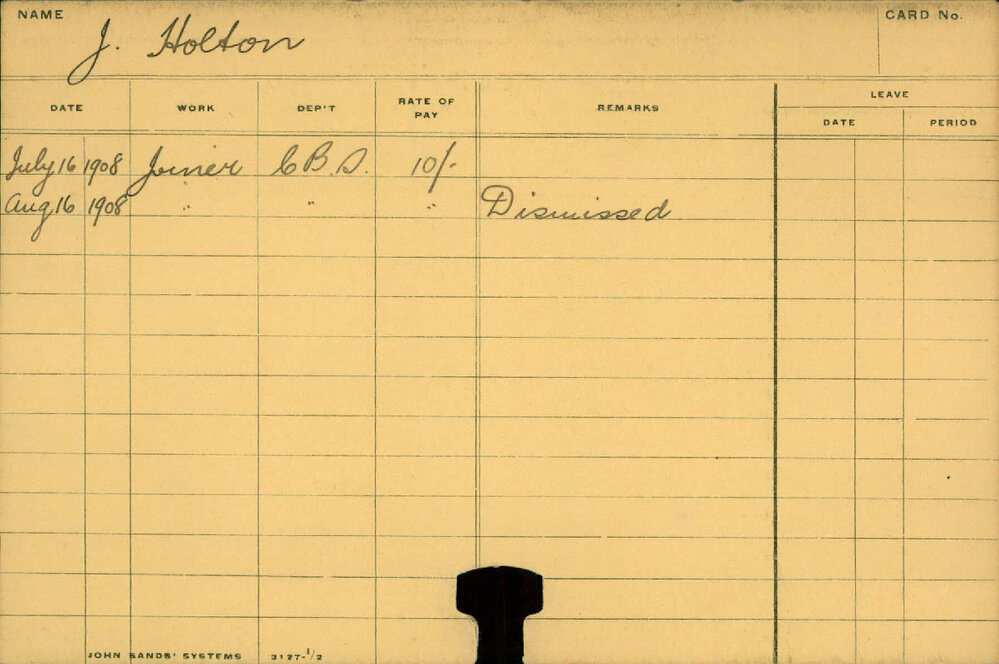 NAME J. Holton CARD No.
LEAVE
DATE WORK DEP'T RATE OF PAY REMARKS DATE PERIOD
July 16 1908 Joiner C B D. 10/-
Aug 16 1908 " " " Dismissed
JOHN SANDS' SYSTEMS 3127-1/2